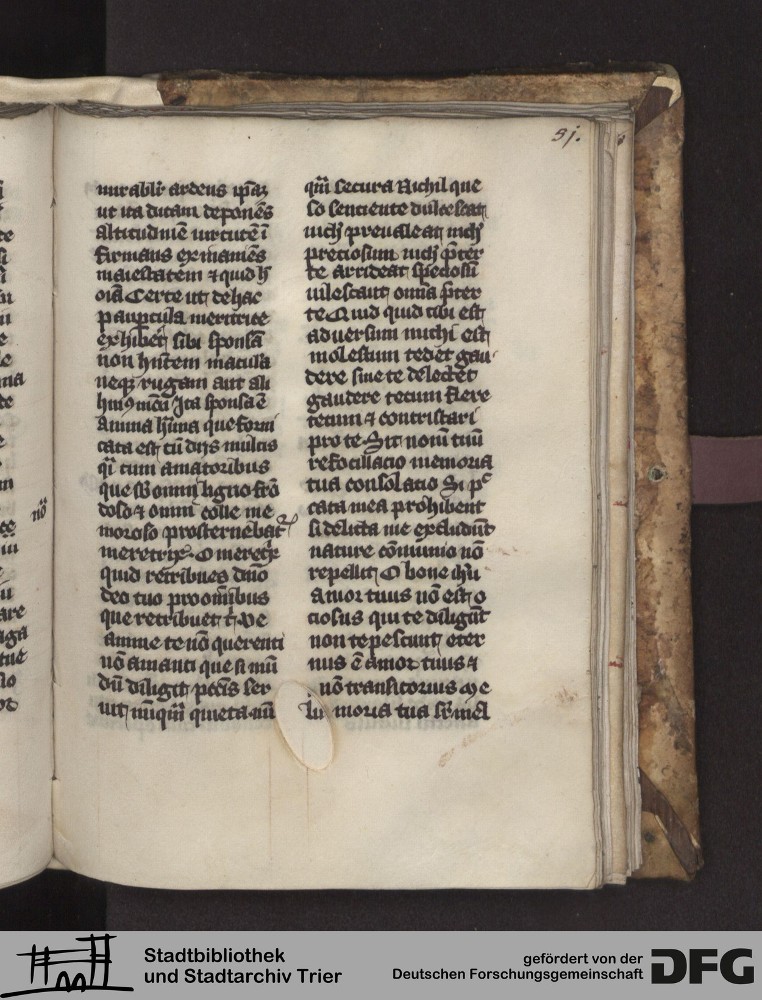 51.
mirabilr ardens ipāȝ
ut ita dicam deponēs
altitudinē virtutē ī
firmans exinaniēs
maiestatem ⁊ quid h̄
oīa Certe ut de hac
paupcula meritrice
exhibeꝫ sibi sponsā
non hn̄tem macula
neqꝫ rugam aut ali
Ita sponsa ē
anima hūna que forni
cata est cū dijs multis
qī cum amatoribus
que sb omni ligno frō
doso ⁊ omni colle me
moroso prosternebat
meretrix O meretx̄
quid retribues dn̄o
deo tuo pro om̄ibus
que retribuet t̄ Ve
anime te nō querenti
nō amanti que si mū
dū diligit pctīs ser
uit nūqūm quieta nū
qūm secura Nichil que
so senciente dulcescat
nich̄ preualeat mich̄
preciosum nich̄ p̄ter
te arrideat speciosū
vilescant omnia p̄ter
te Quid quid tibi est
aduersum michi est
molestum tedet gau
dere sine te delectet
gaudere tecum flere
tecum ⁊ contristari
pro te Sit nomē tuū
refocillacio memoria
tua consolacio Si pc
cata mea prohibent
si delicta me excludūt
nature cōmunio nō
repellit O bone ih̄u
amor tuus nō est o
ciosus qui te diligūt
non tepescunt eter
nus ē amor tuus ⁊
nō transitorius Me
moria tua sr̄ mel
nō
Stadtbibliothek
und Stadtarchiv Trier
gefördert von der
Deutschen Forschungsgemeinschaft
DFG